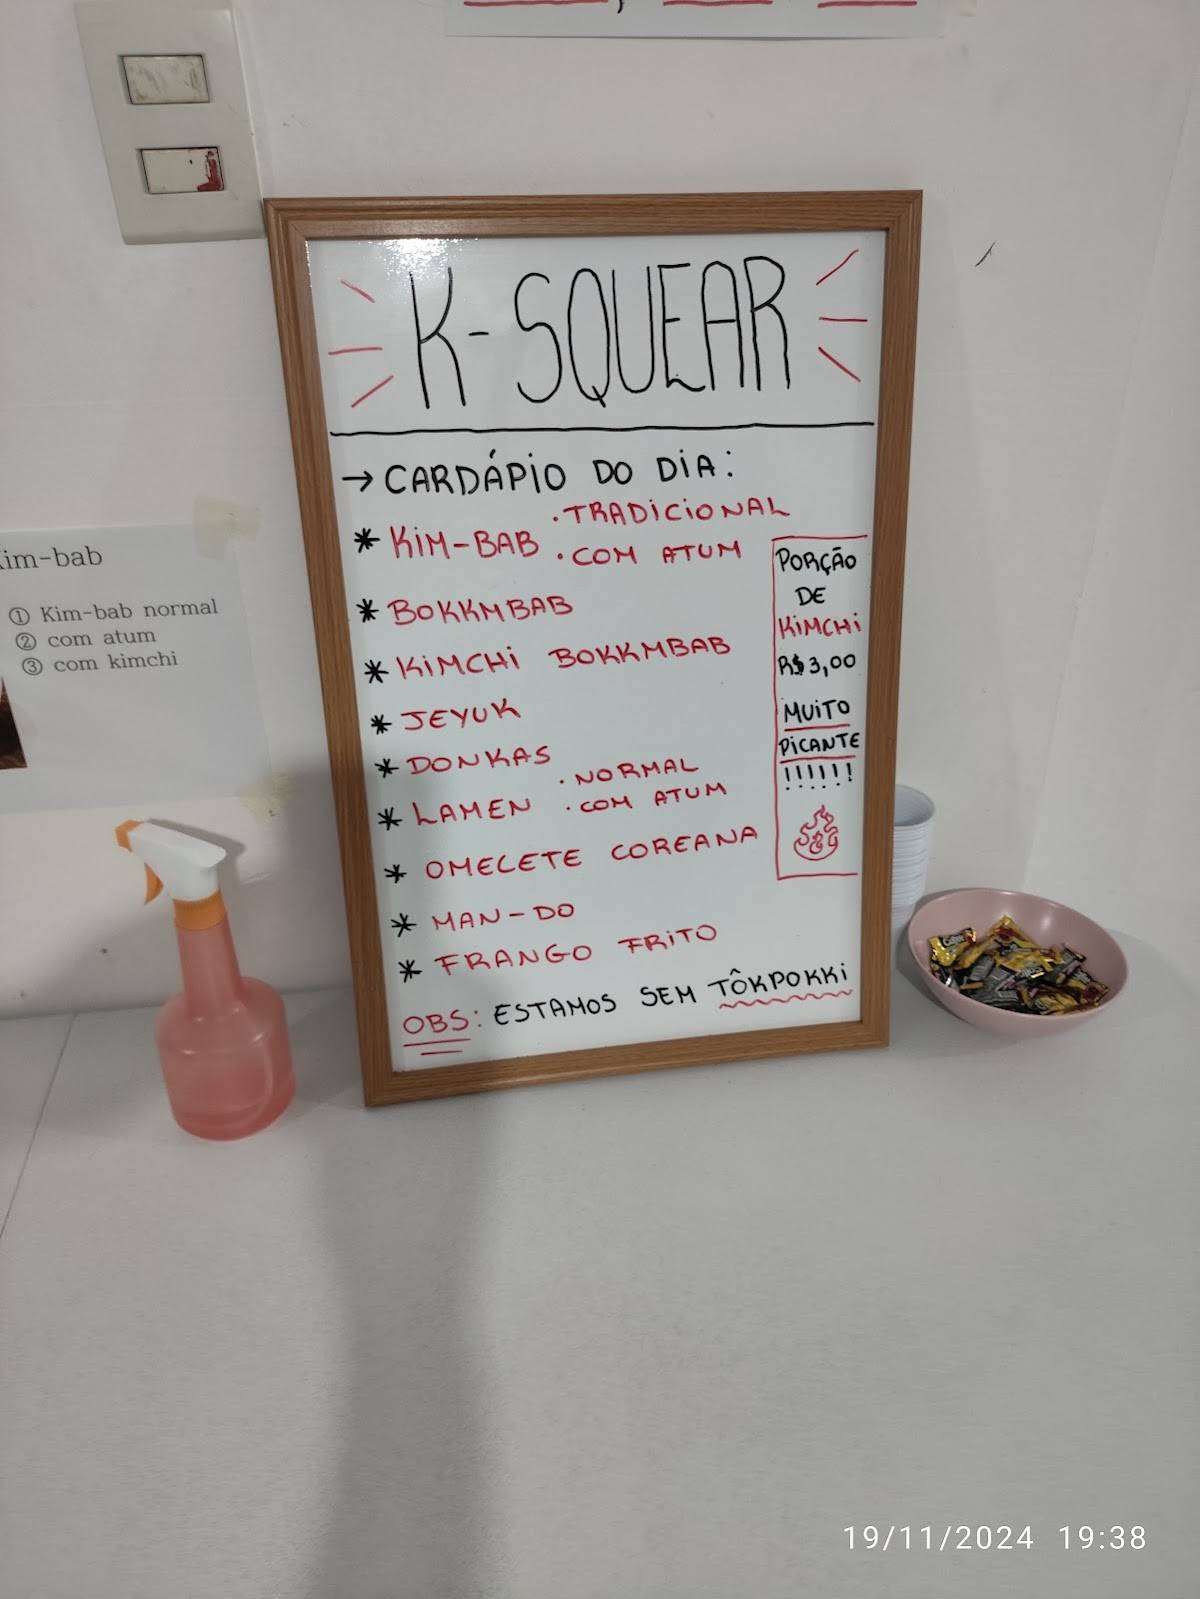 K-SQUEAR
→ CARDÁPIO DO DIA:
* KIM-BAB
. TRADICIONAL
. COM ATUM
* BOKKMBAB
* KIMCHI BOKKMBAB
* JEYUK
* DONKAS
* LAMEN
. NORMAL
. COM ATUM
* OMELETE COREANA
* MAN-DO
* FRANGO FRITO
OBS: ESTAMOS SEM TÔKPOKKI
PORÇÃO
DE
KIMCHI
R$3,00
MUITO
PICANTE
!!!!!!
im-bab
① Kim-bab normal
② com atum
③ com kimchi
19/11/2024 19:38